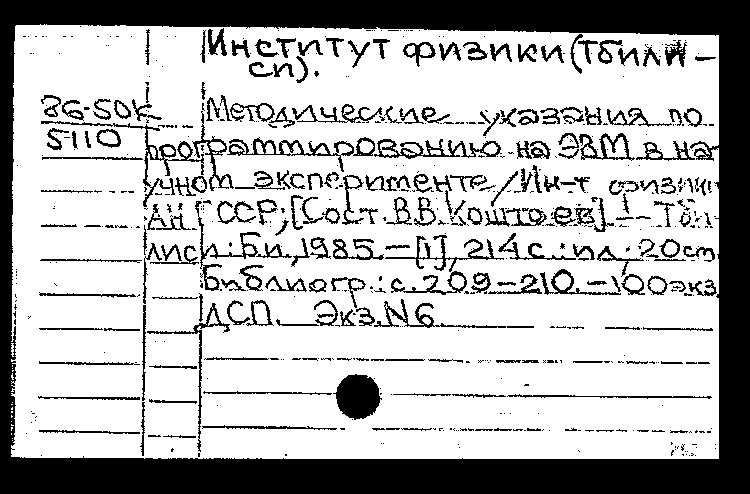 Институт физики (Тбили-
си).
86-50К
5110
Методические указания по
программированию на ЭВМ в на-
учном эксперименте / Ин-т физики
АН ГССР; [Сост. В.В. Коштоев]. — Тби-
лиси: Б.и., 1985. — [1], 214 с.: ил.; 20 см
Библиогр.: с. 209-210. — 100 экз.
ДСП. Экз. N 6.